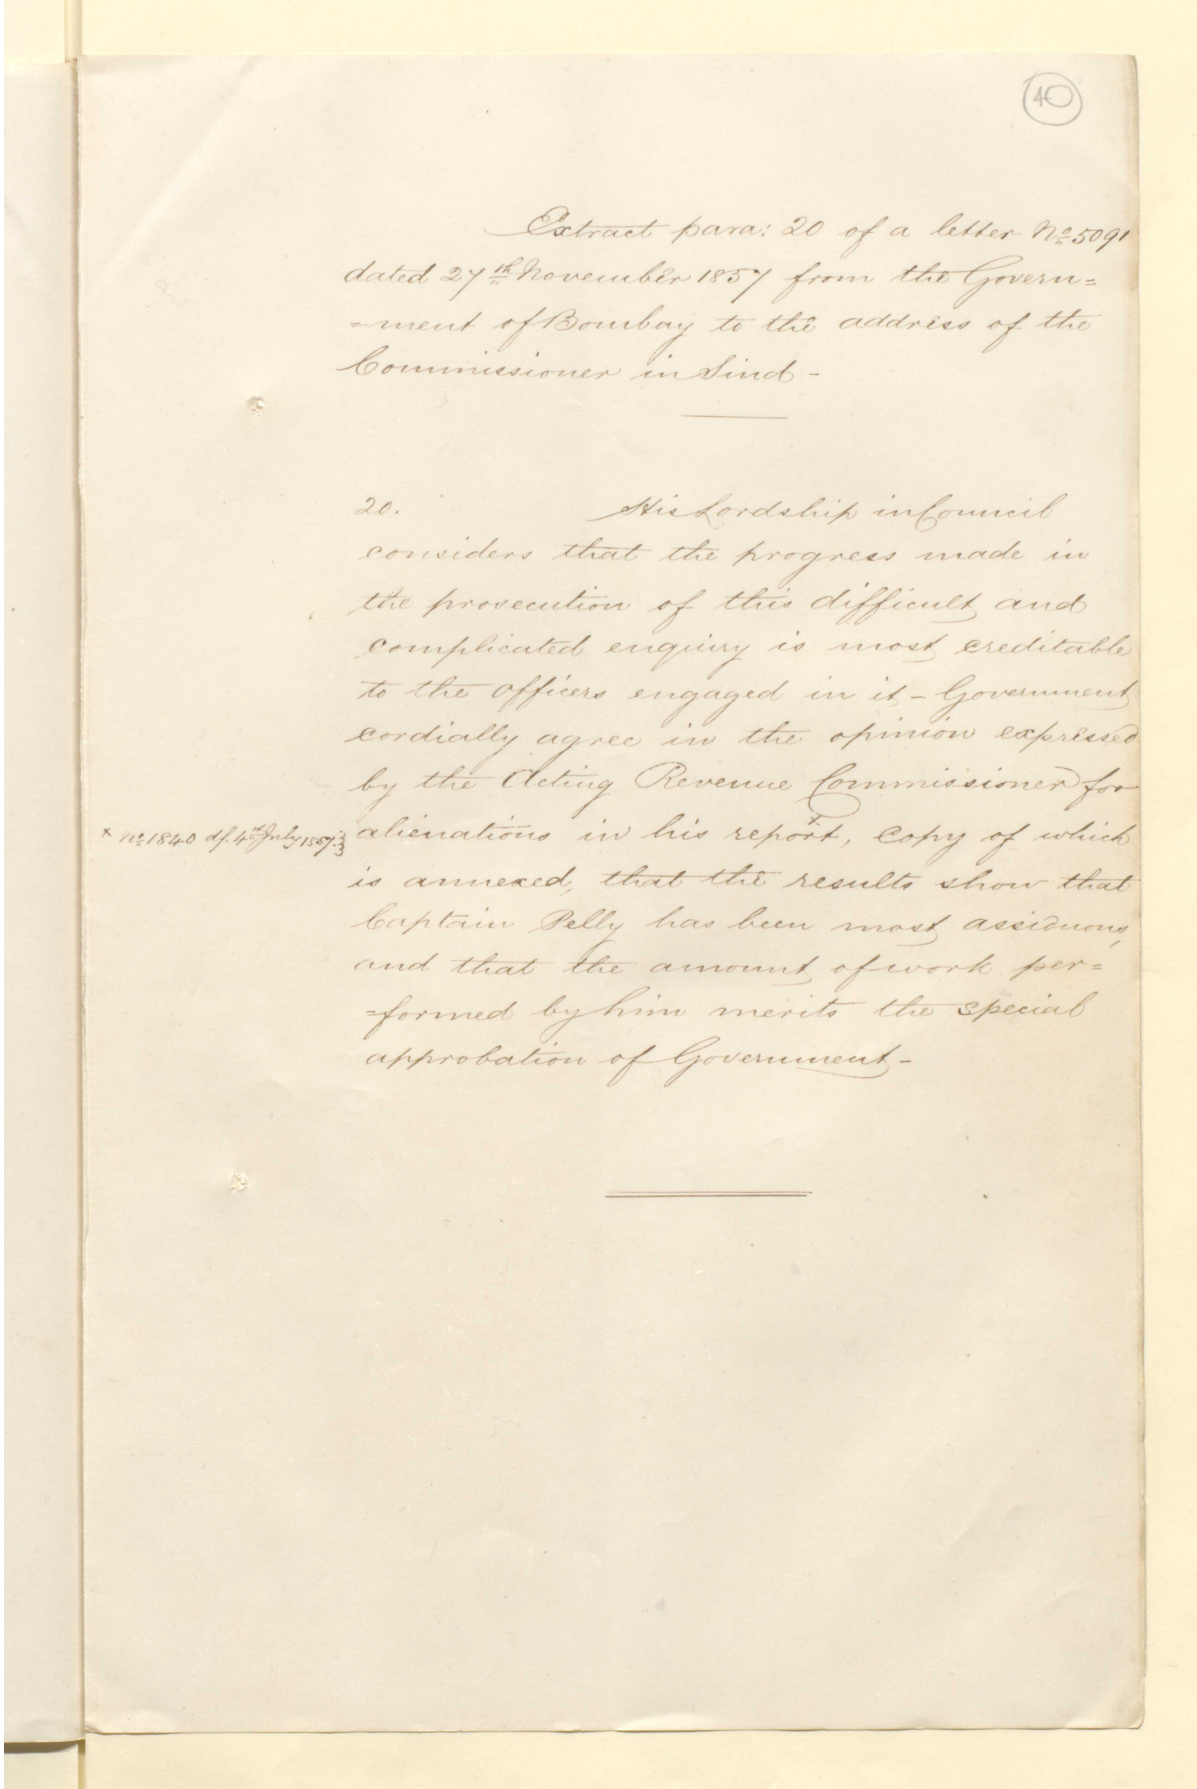 40
Extract para: 20 of a letter No 5091
dated 27th November 1857 from the Govern=
=ment of Bombay to the address of the
Commissioner in Sind -
20. His Lordship in Council
considers that the progress made in
the prosecution of this difficult and
complicated enquiry is most creditable
to the Officers engaged in it - Government
cordially agree in the opinion expressed
by the Acting Revenue Commissioner for
x No 1840 df. 4th July 1857.
alienations in his report x, copy of which
is annexed, that the results show that
Captain Pelly has been most assiduous,
and that the amount of work per=
=formed by him merits the special
approbation of Government -